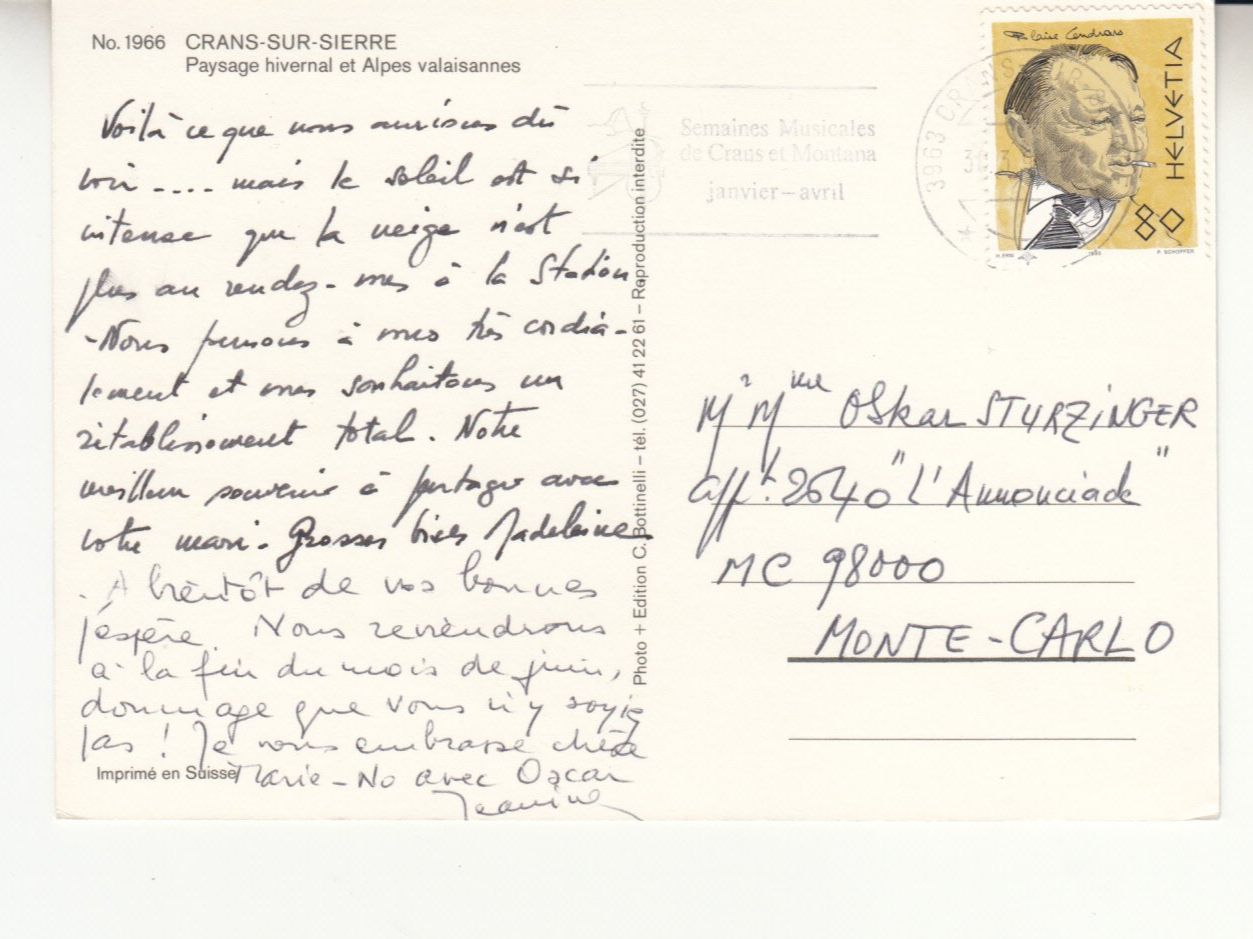 No. 1966 CRANS-SUR-SIERRE
Paysage hivernal et Alpes valaisannes
Voilà ce que nous aurions dû
voir .... mais le soleil est si
intense que la neige n'est
plus au rendez-vous à la Station
-Nous pensons à vous très cordia-
lement et vous souhaitons un
rétablissement total. Notre
meilleur souvenir à partager avec
votre mari. Grosses bises Madeleine
. A bientôt de vos bonnes
j'espère. Nous reviendrons
à la fin du mois de juin,
dommage que vous n'y soyiez
pas ! Je vous embrasse chère
Marie-No avec Oscar
Jeanine
Imprimé en Suisse
Photo + Edition C. Bottinelli – tél. (027) 41 22 61 – Reproduction interdite
Semaines Musicales
de Crans et Montana
janvier – avril
3963 CRANS
Blaise Cendrars
HELVETIA
80
P. SCHOPFER
Mr Mme Oskar STURZiNGER
appt. 2640 "L'Annonciade"
MC 98000
MONTE-CARLO